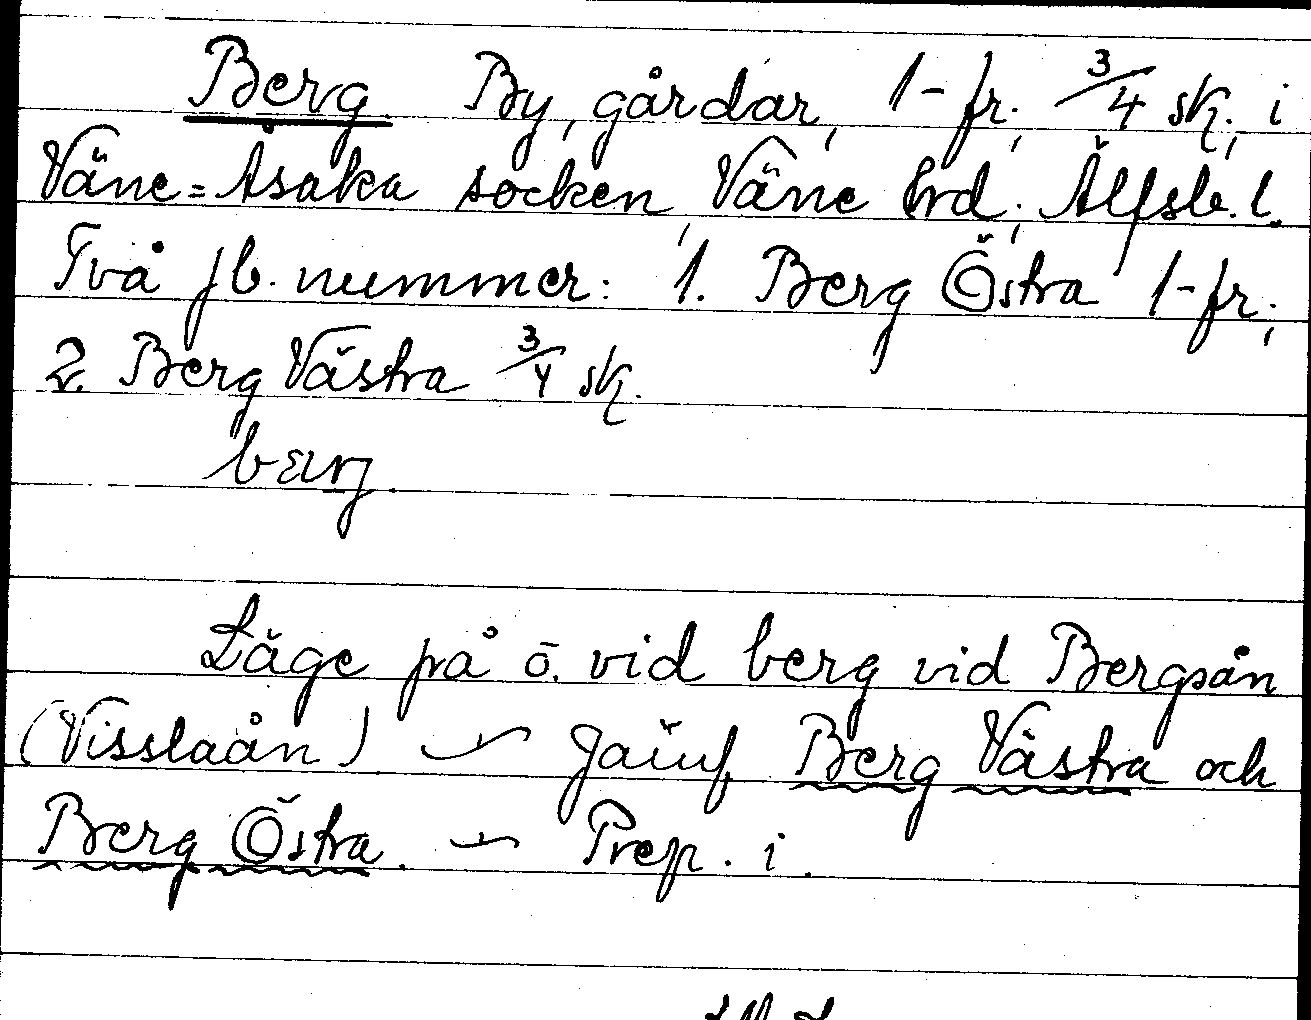 Berg By, gårdar, 1-fr.; 3/4 sk.; i
Väne=Åsaka socken, Väne hrd; Älfsb. l.
Två jb. nummer: 1. Berg Östra 1-fr.;
2. Berg Västra 3/4 sk.
Läge på ö. vid berg vid Bergsån
(Visslaån) — Jämf. Berg Västra och
Berg Östra. — Prep. i.